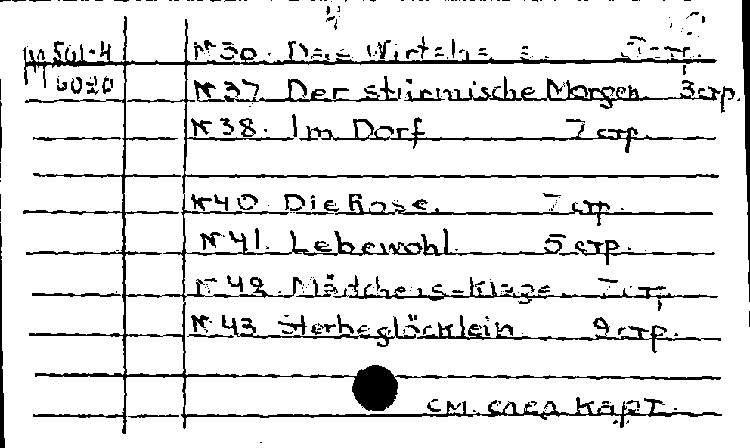 4
М 501-4 № 30. Das Wirtshaus 5 стр.
6020 № 37. Der stürmische Morgen. 3 стр.
№ 38. Im Dorf 7 стр.
№ 40. Die Rose. 7 стр.
№ 41. Lebewohl. 5 стр.
№ 42. Mädchens-Klage. 7 стр.
№ 43 Sterbeglöcklein 9 стр.
см. след карт.